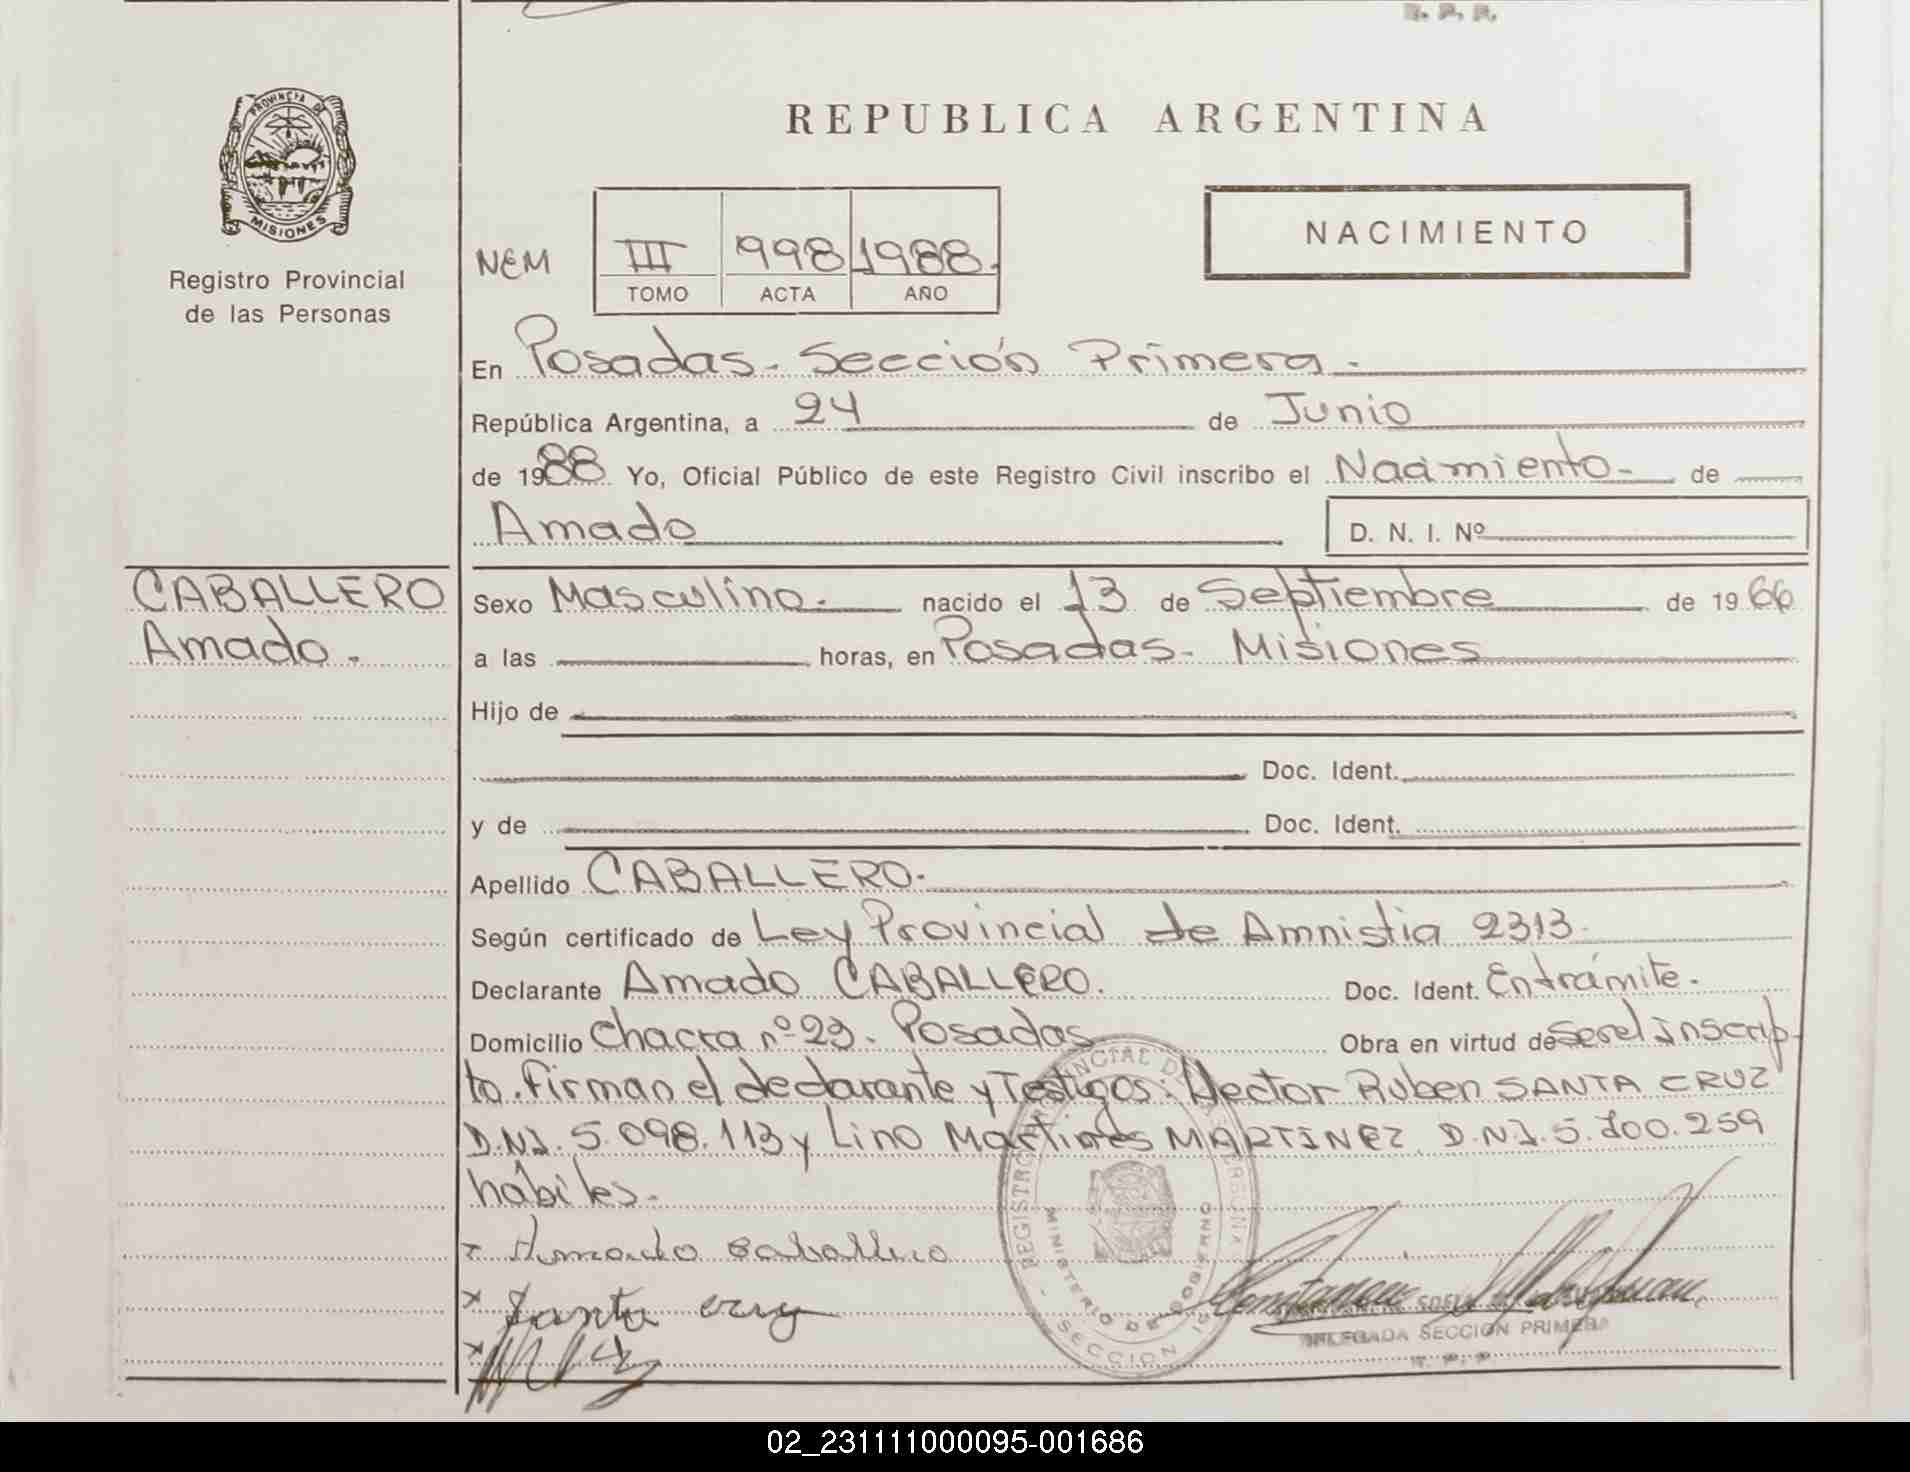 R. P. P.
PROVINCIA DE MISIONES
Registro Provincial
de las Personas
REPUBLICA ARGENTINA
NACIMIENTO
NEM III 998 1988.
TOMO ACTA AÑO
En Posadas. Sección Primera.
República Argentina, a 24 de Junio
de 1988 Yo, Oficial Público de este Registro Civil inscribo el Nacimiento. de
Amado D. N. I. Nº
CABALLERO
Amado.
Sexo Masculino. nacido el 13 de Septiembre de 1966
a las horas, en Posadas. Misiones
Hijo de
Doc. Ident.
y de Doc. Ident.
Apellido CABALLERO.
Según certificado de Ley Provincial de Amnistia 2313.
Declarante Amado CABALLERO. Doc. Ident. Entrámite.
Domicilio Chacra nº 23. Posadas Obra en virtud de Ser el inscrip-
to. Firman el declarante y Testigos: Hector Ruben SANTA CRUZ
D.N.I. 5.098.113 y Lino Martires MARTINEZ D.N.I. 5.700.259
hábiles.
x Amado Caballero
x Santa cruz
x
REGISTRO PROVINCIAL DE LAS PERSONAS
MINISTERIO DE GOBIERNO
SECCION 1
DELEGADA SECCION PRIMERA
R. P. P.
02_231111000095-001686